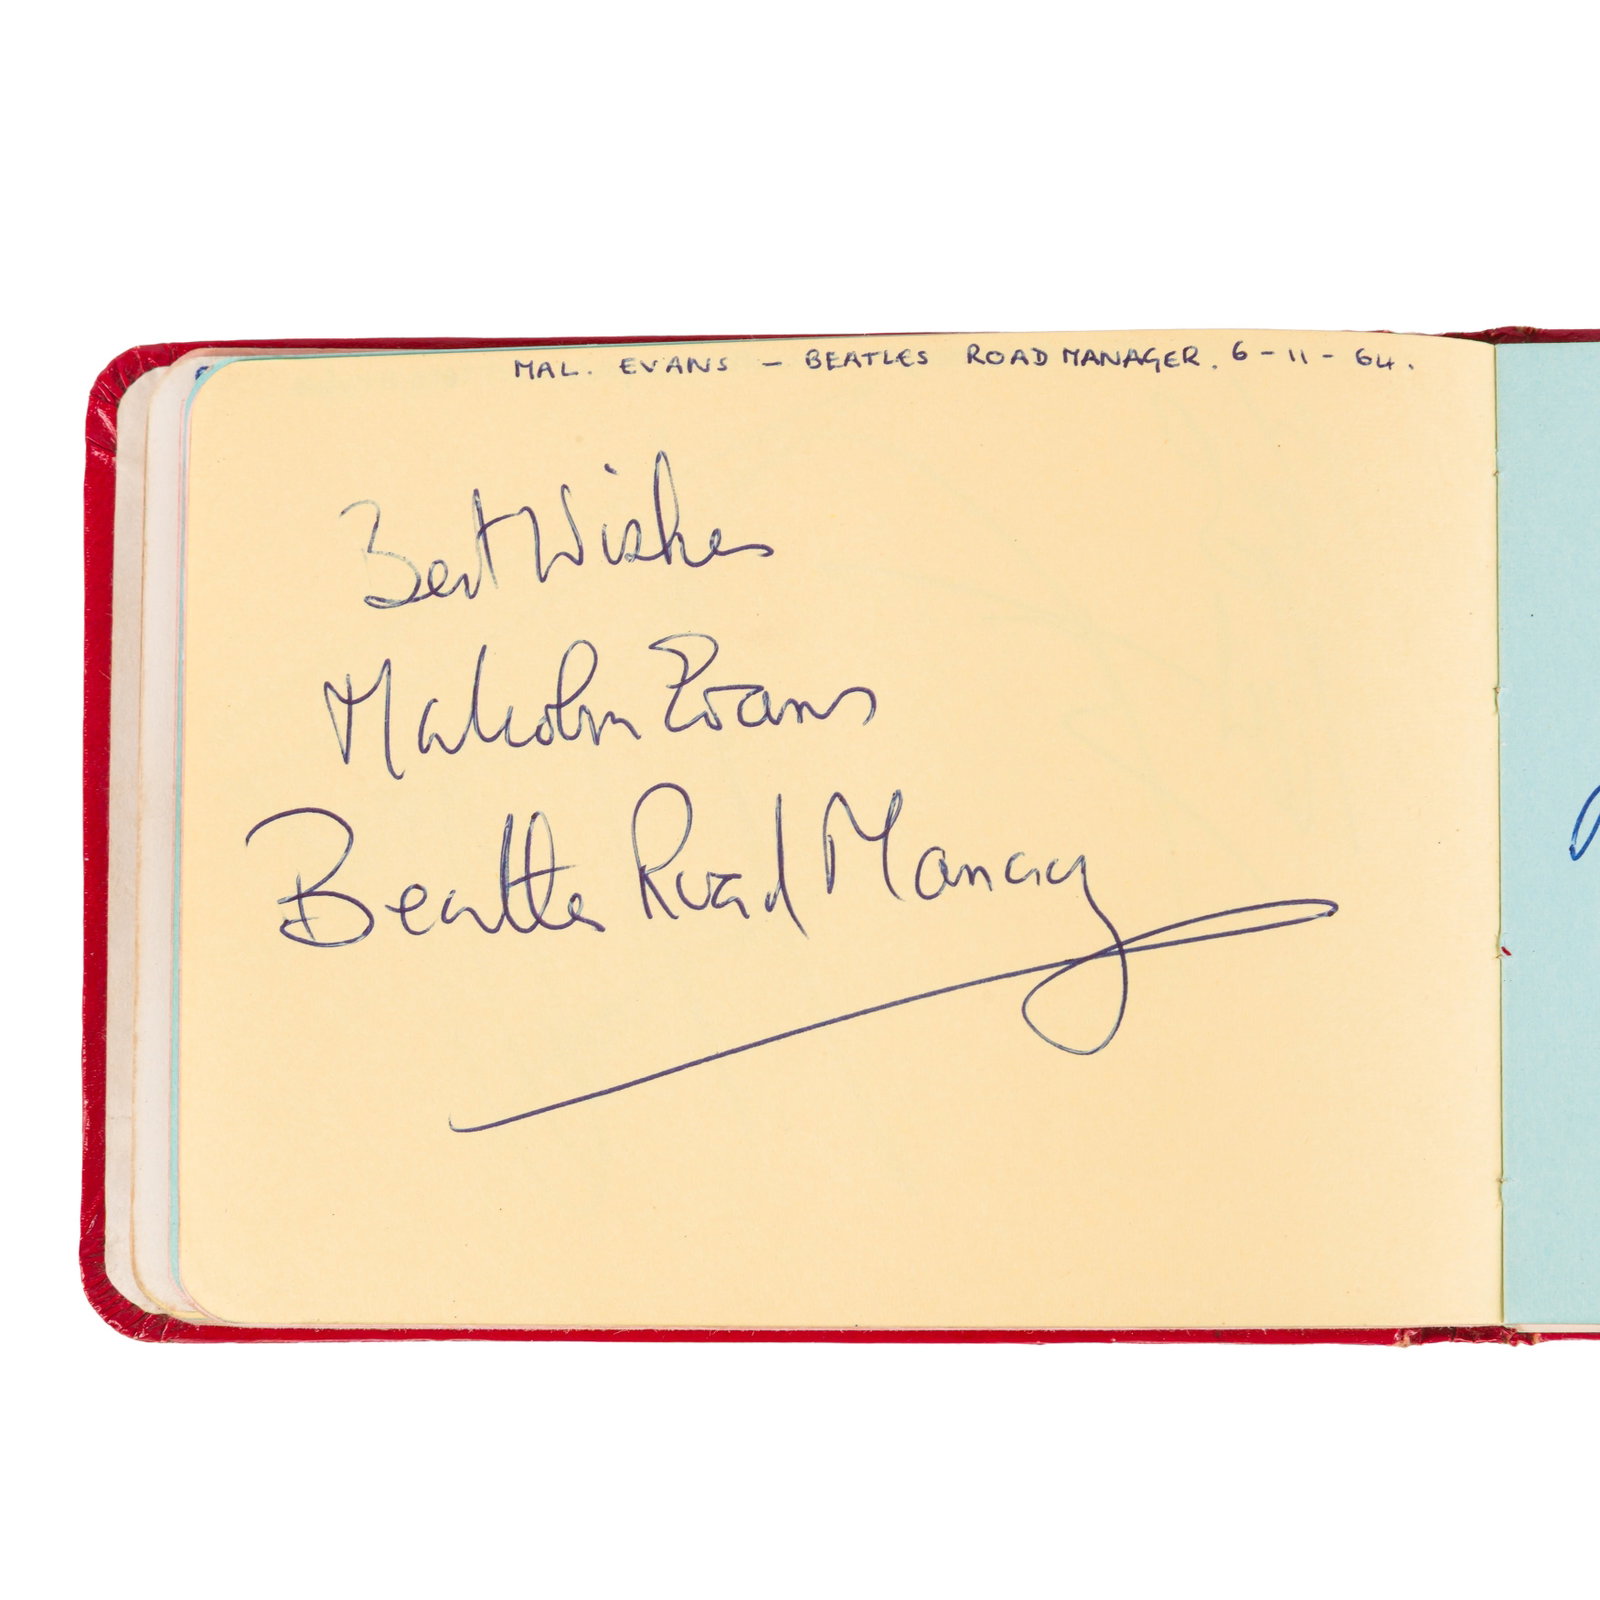 MAL. EVANS – BEATLES ROAD MANAGER. 6-11-64.
Best Wishes
Malcolm Evans
Beatles Road Manager